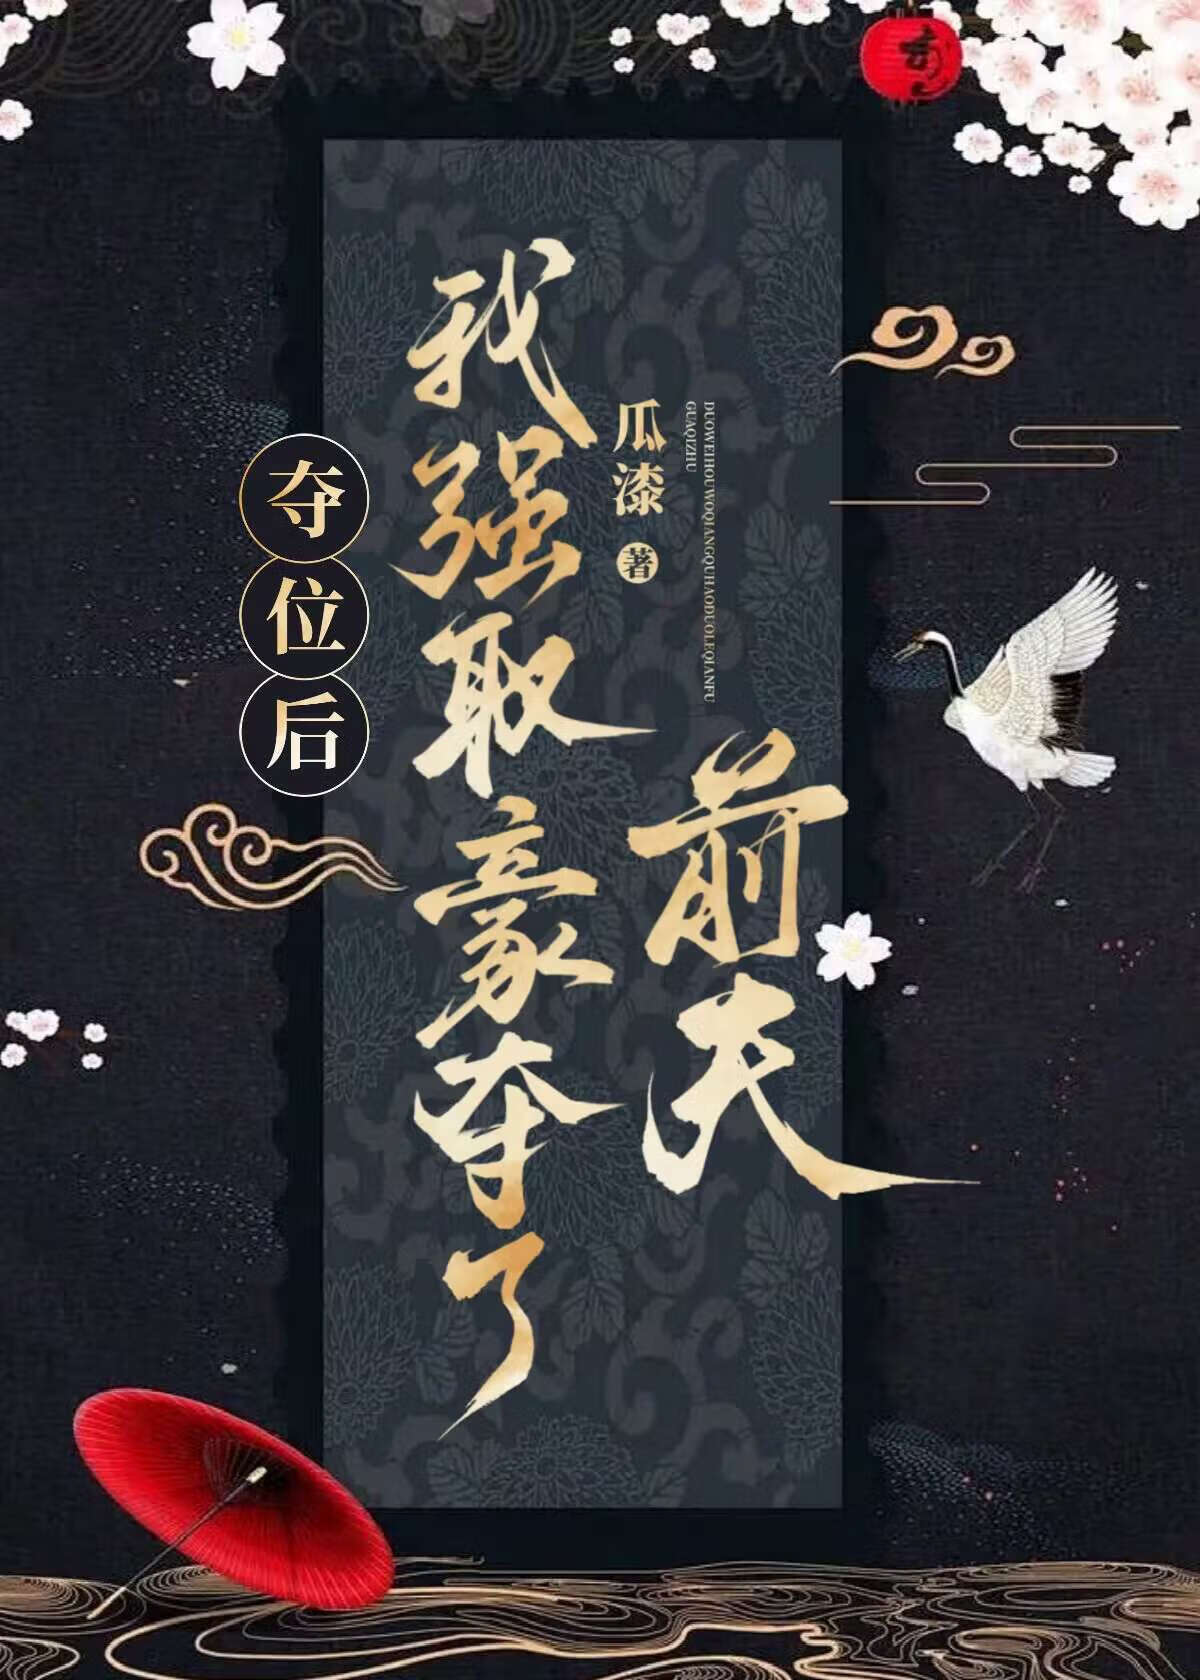 夺位后
我强取豪夺了
前夫
瓜漆 著
DUOWEIHOUWOQIANGQUHAODUOLEQIANFU
GUAQIZHU